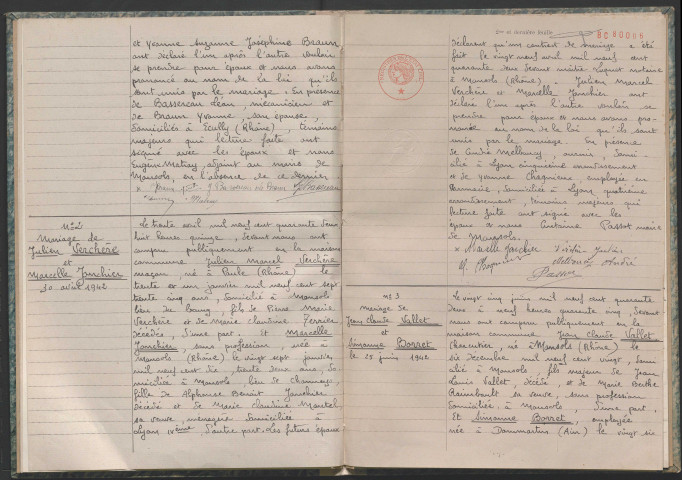 et Yvonne Suzanne Joséphine Braun
ont déclaré l'un après l'autre vouloir
se prendre pour époux et nous avons
prononcé au nom de la loi qu'ils
sont unis par le mariage. En présence
de Basserau Léon, mécanicien et
de Braun Yvonne, son épouse,
domiciliés à Ecully (Rhône), témoins
majeurs qui lecture faite ont
signé avec les époux et nous
Eugène Matray, adjoint au maire de
Monsols, en l'absence de ce dernier
N° 2
Mariage de
Julien Verchère
et
Marcelle Janchier
30 avril 1942
Le trente avril mil neuf cent quarante deux
huit heures quinze, devant nous ont
comparu publiquement en la maison
commune Julien Marcel Verchère
maçon, né à Poule (Rhône) le
trente et un janvier mil neuf cent sept
trente cinq ans, domicilié à Monsols
lieu de bourg, fils de Pierre Marie
Verchère et de Marie Claudine Terraire
décédés, d'une part. et Marcelle
Janchier, sans profession, née à
Monsols (Rhône) le vingt sept janvier
mil neuf cent dix, trente deux ans, do
miciliée à Monsols, lieu de
fille de Alphonse Benoit Janchier
décédé et de Marie Claudine
sa veuve, ménagère domiciliée à
Lyon IXème, d'autre part. Les futurs époux
2me et dernière feuille
déclarent qu'un contrat de mariage a été
fait le vingt neuf avril mil neuf cent
quarante deux devant maître notaire
à Monsols (Rhône). Julien Marcel
Verchère et Marcelle Janchier ont
déclaré l'un après l'autre vouloir se
prendre pour époux et nous avons pro-
noncé au nom de la loi qu'ils sont
unis par le mariage. En présence
de André, domi-
cilié à Lyon cinquième arrondissement
et de Yvonne employée en
Pharmacie, domiciliée à Lyon quatrième
arrondissement, témoins majeurs qui
lecture faite ont signé avec les
époux et nous Antoine Passot maire
de Monsols.
Marcelle Janchier
André
Passot
N° 3
Mariage de
Jean Claude Vallet
et
Simonne Borret
le 25 juin 1942
Le vingt cinq juin mil neuf cent quarante
deux à neuf heures quarante cinq, devant
nous ont comparu publiquement en la
maison commune Jean Claude Vallet
charcutier, né à Monsols (Rhône) le
six décembre mil neuf cent vingt, domi
cilié à Monsols, fils majeur de Jean
Louis Vallet, décédé, et de Marie Berthe
Raimbault sa veuve, sans profession
domiciliée à Monsols, d'une part.
Et Simonne Borret, employée
née à Dommartin (Ain) le vingt six